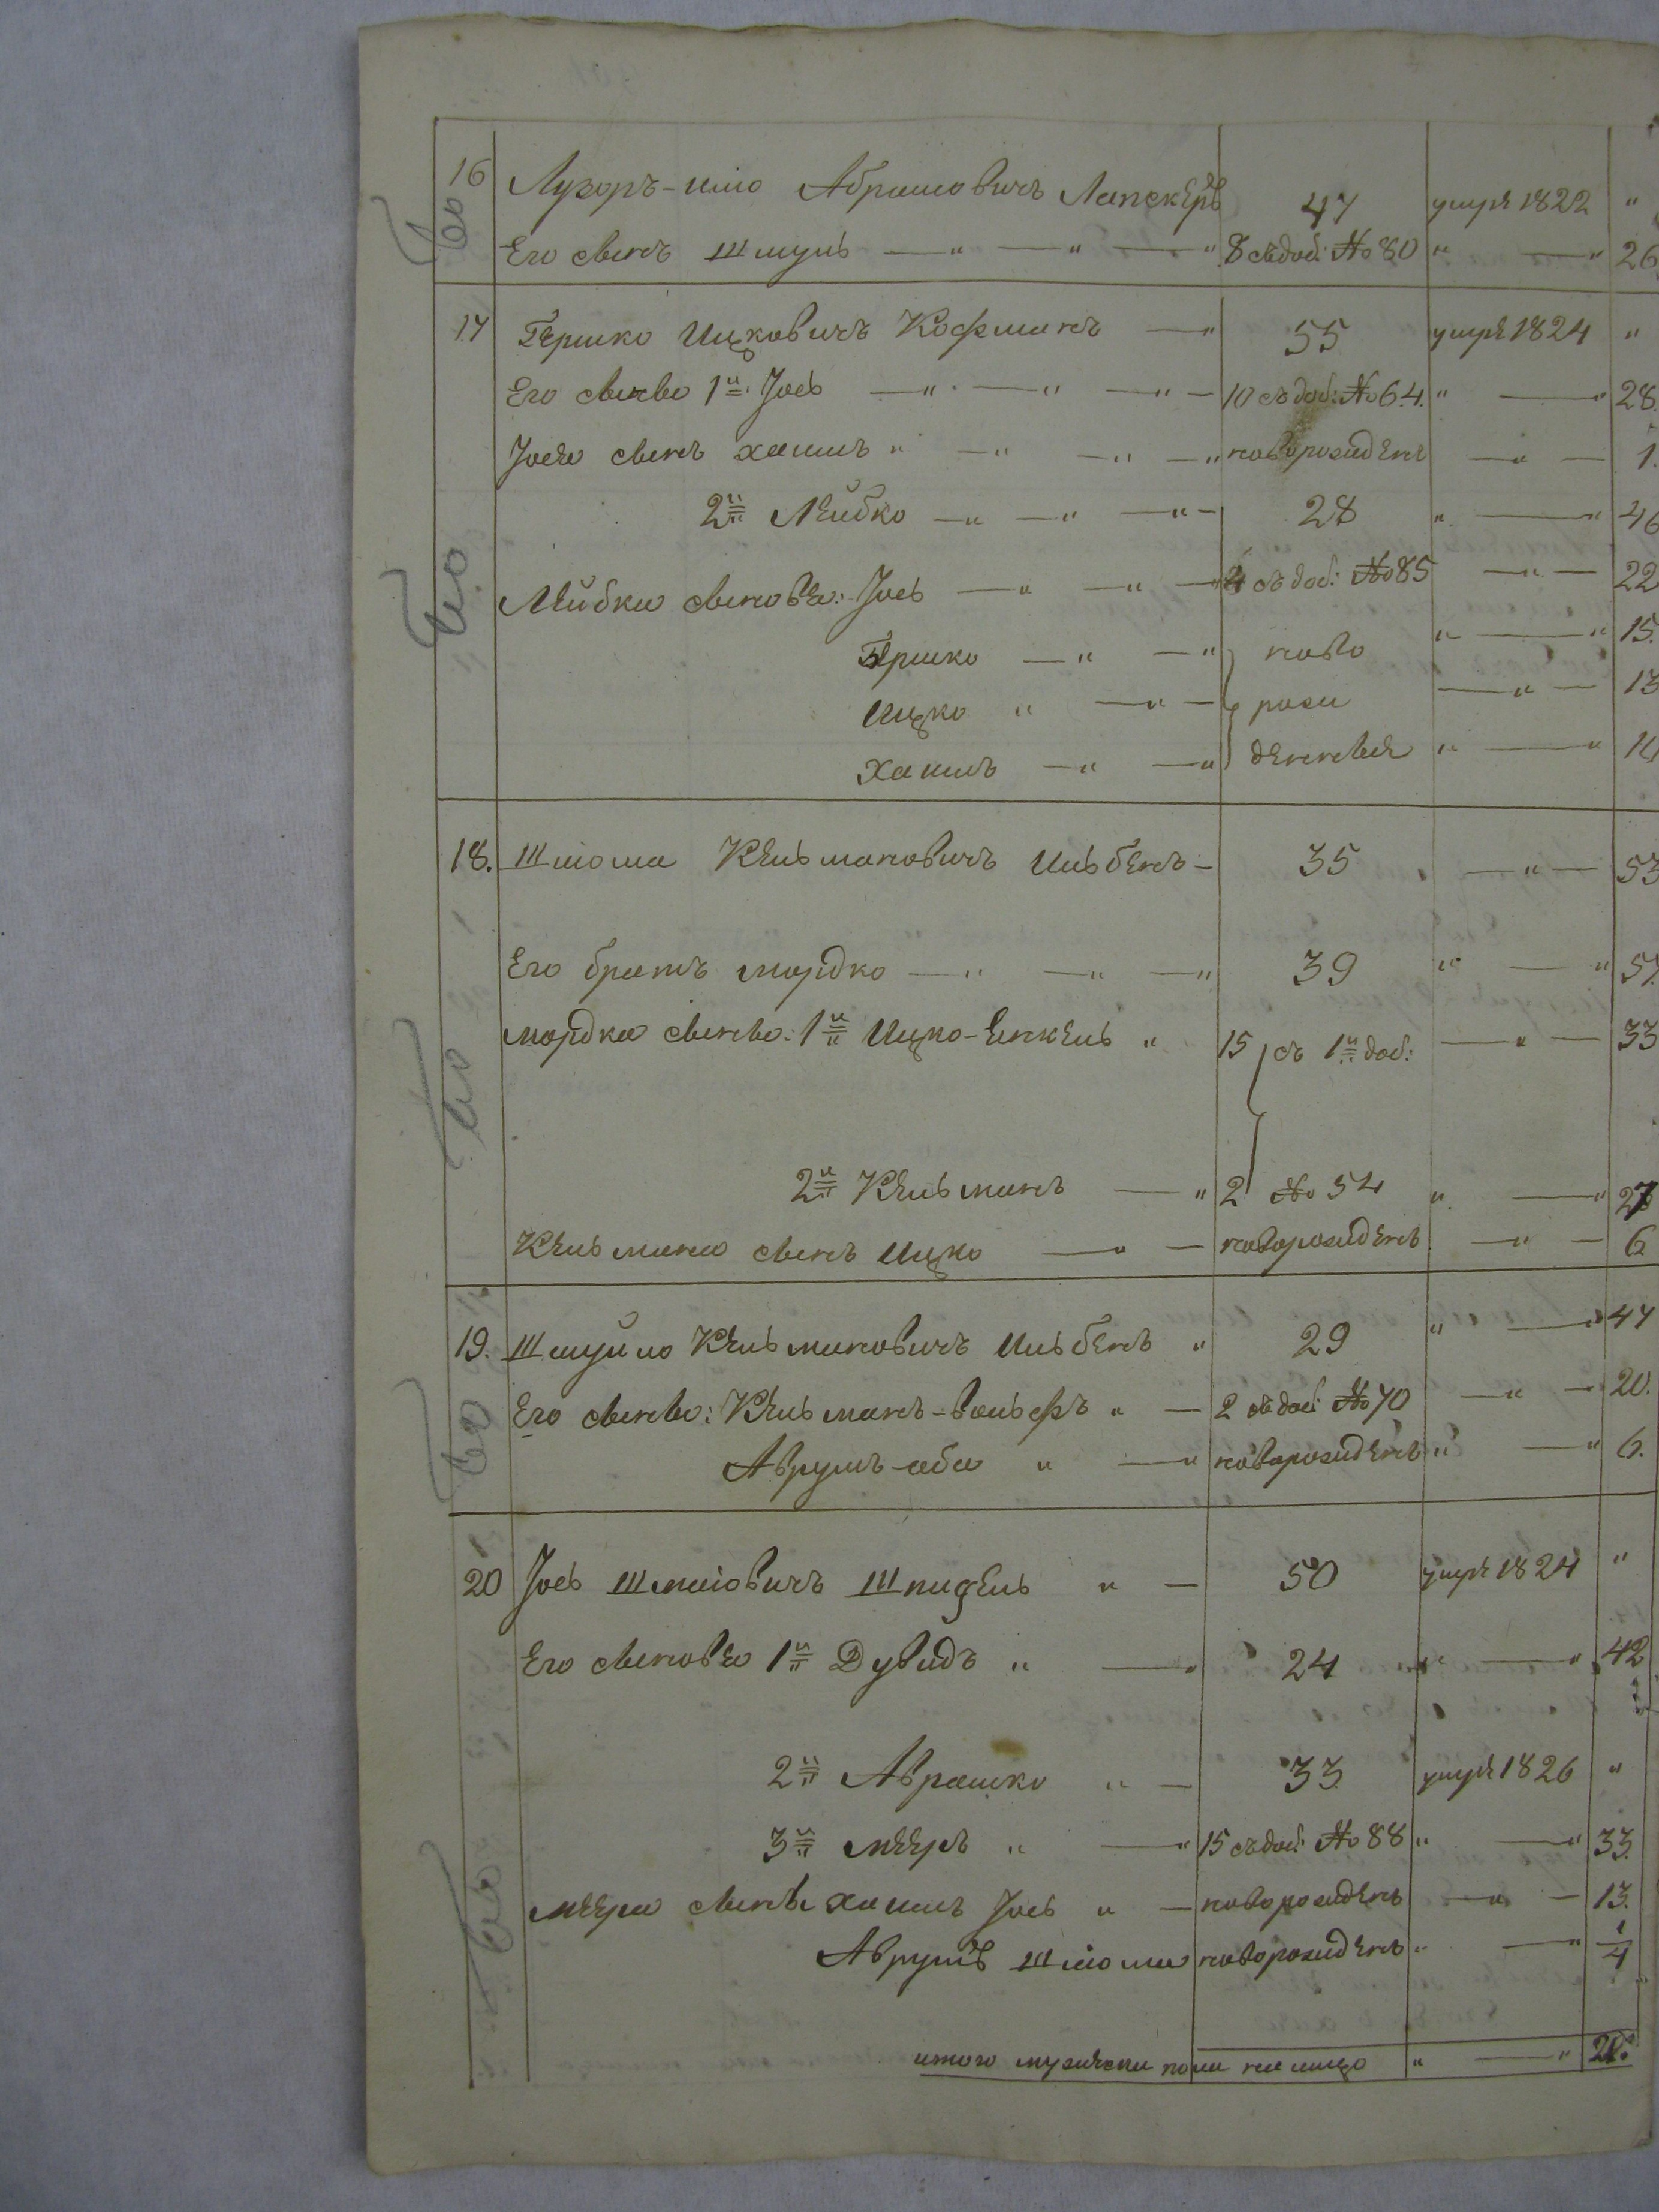 16 Лузоръ-имо Абрамовичъ Лапскеръ 47 умре 1822 "
Его сынъ Шмуль — " — " — " 8 съ доб: № 80 " — " 26
17 Гершко Ицковичъ Кофманъ — " 55 умре 1824 "
Его сыновъя 1й Іось — " — " — " — 10 съ доб: № 64. " — " 28.
Іося сынъ Хаимъ " — " — " — " новорожденъ — " — 1.
2й Лейбко — " — " — " — 28 " — " 46
Лейбки сыновъя: Іось — " — " — " 4 съ доб: № 85 — " — 22
Гершко — " — " ново " — " 15.
Ицко " — " — рож " — 13
Хаимъ — " — " денные " — "
18. Шлома Кельмановичъ Ильбенъ — 35 — " — 53
Его братъ Мордко — " — " — " 39 " — " 57.
Мордка сыновъя: 1й Ицко-Енкель " 15 съ 1й доб: — " — 33
2й Кельманъ — " 2 № 54 " — " 27
Кельмана сынъ Ицко — " — новорожденъ — " — 6
19. Шмуйло Кельмановичъ Ильбенъ " 29 " — " 47
Его сыновъя: Кельманъ-Вольфъ " — 2 съ доб: № 70 — " — 20.
Аврумъ-аба " — " новорожденъ " — " 6.
20 Іось Шмаіовичъ Шпидель " — 50 умре 1824 "
Его сыновъя 1й Дувидъ " — " 24 " — " 42
2й Аврамко " — 33 умре 1826 "
3й Мееръ " — " 15 съ доб: № 88 " — " 33.
Меера сынъ Хаимъ Іось " — новорожденъ — " — 13.
Аврумъ Шлома новорожденъ " — " 1/4
итого мужеска пола на лицо " — "